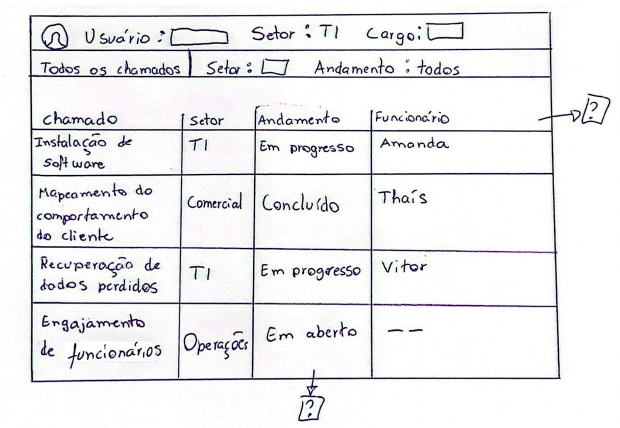 Usuário: Setor: TI Cargo:
Todos os chamados Setor: Andamento: todos
chamado Setor Andamento Funcionário
?
Instalação de
software
TI
Em progresso
Amanda
Mapeamento do
comportamento
do cliente
Comercial
Concluído
Thaís
Recuperação de
dados perdidos
TI
Em progresso
Vitor
Engajamento
de funcionários
Operações
Em aberto
--
?